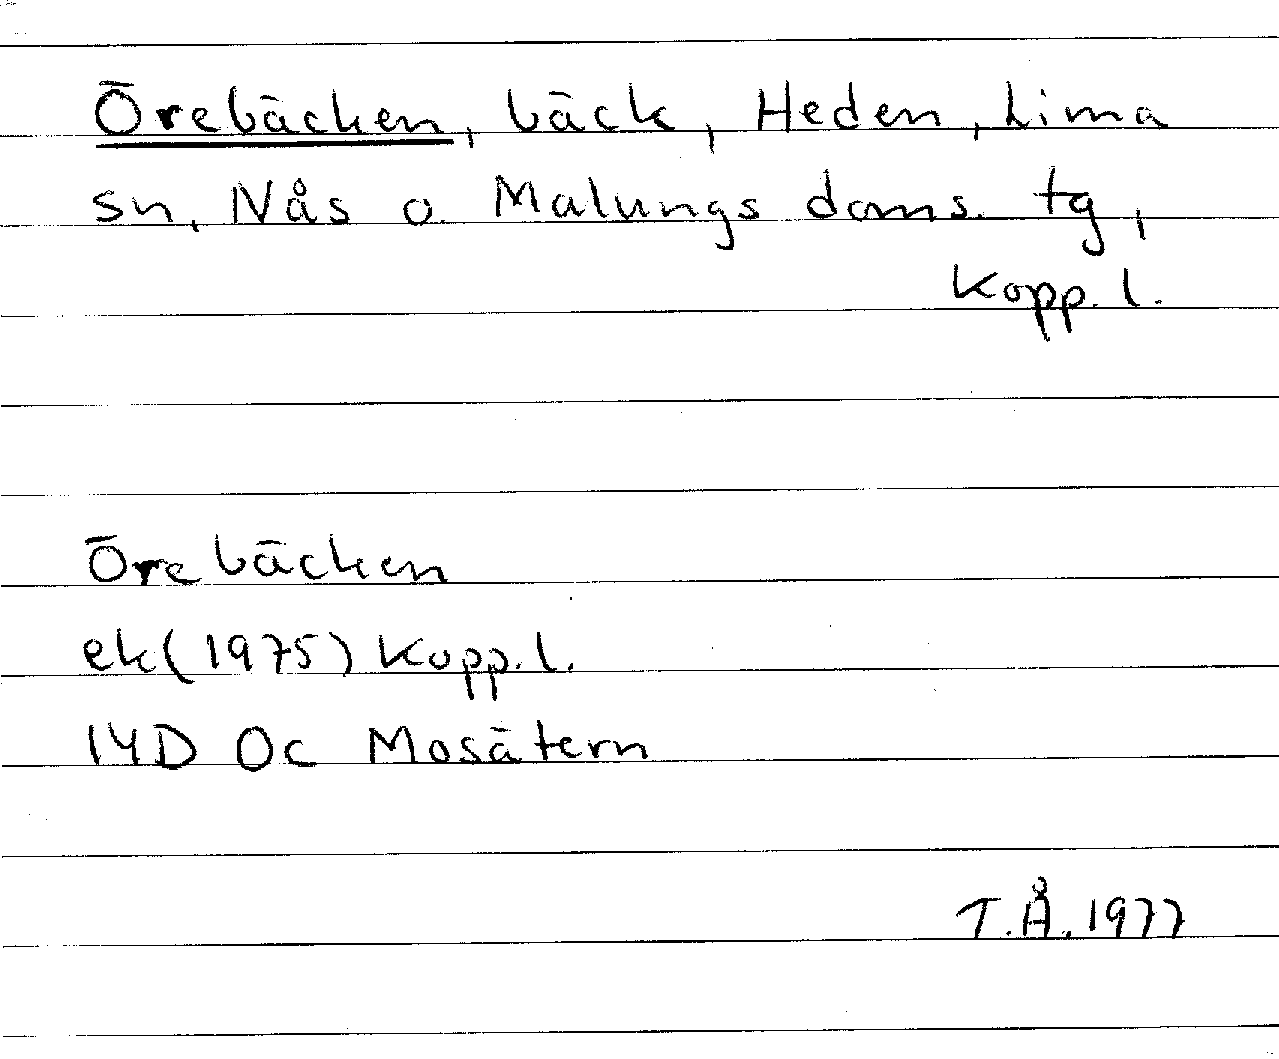 Örebäcken, bäck, Heden, Lima
sn, Nås o. Malungs doms. tg,
Kopp. l.
Örebäcken
ek (1975) Kopp. l.
14D 0c Mosätern
T.Å. 1977